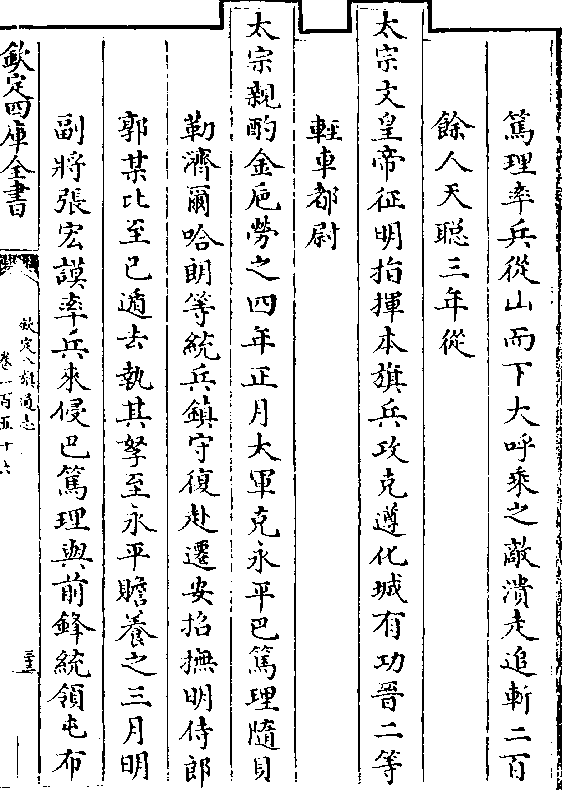 篤理率兵從山而下大呼乘之敵潰走追斬二百
餘人天聰三年從
太宗文皇帝征明指揮本旗兵攻克遵化城有功晉二等
輕車都尉
太宗親酌金巵勞之四年正月大軍克永平巴篤理隨貝
勒濟爾哈朗等統兵鎮守復赴遷安招撫明侍郎
郭某比至已遁去執其孥至永平贍養之三月明
副將張宏謨率兵來侵巴篤理與前鋒統領屯布
欽定四庫全書
欽定八旗通志
卷一百五十六
二十三